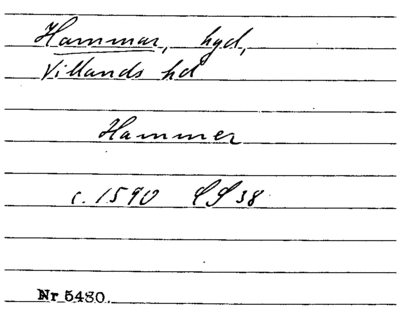 Hammar, hyd,
Villands hd
Hammer
c. 1590 LS 38
Nr 5480.